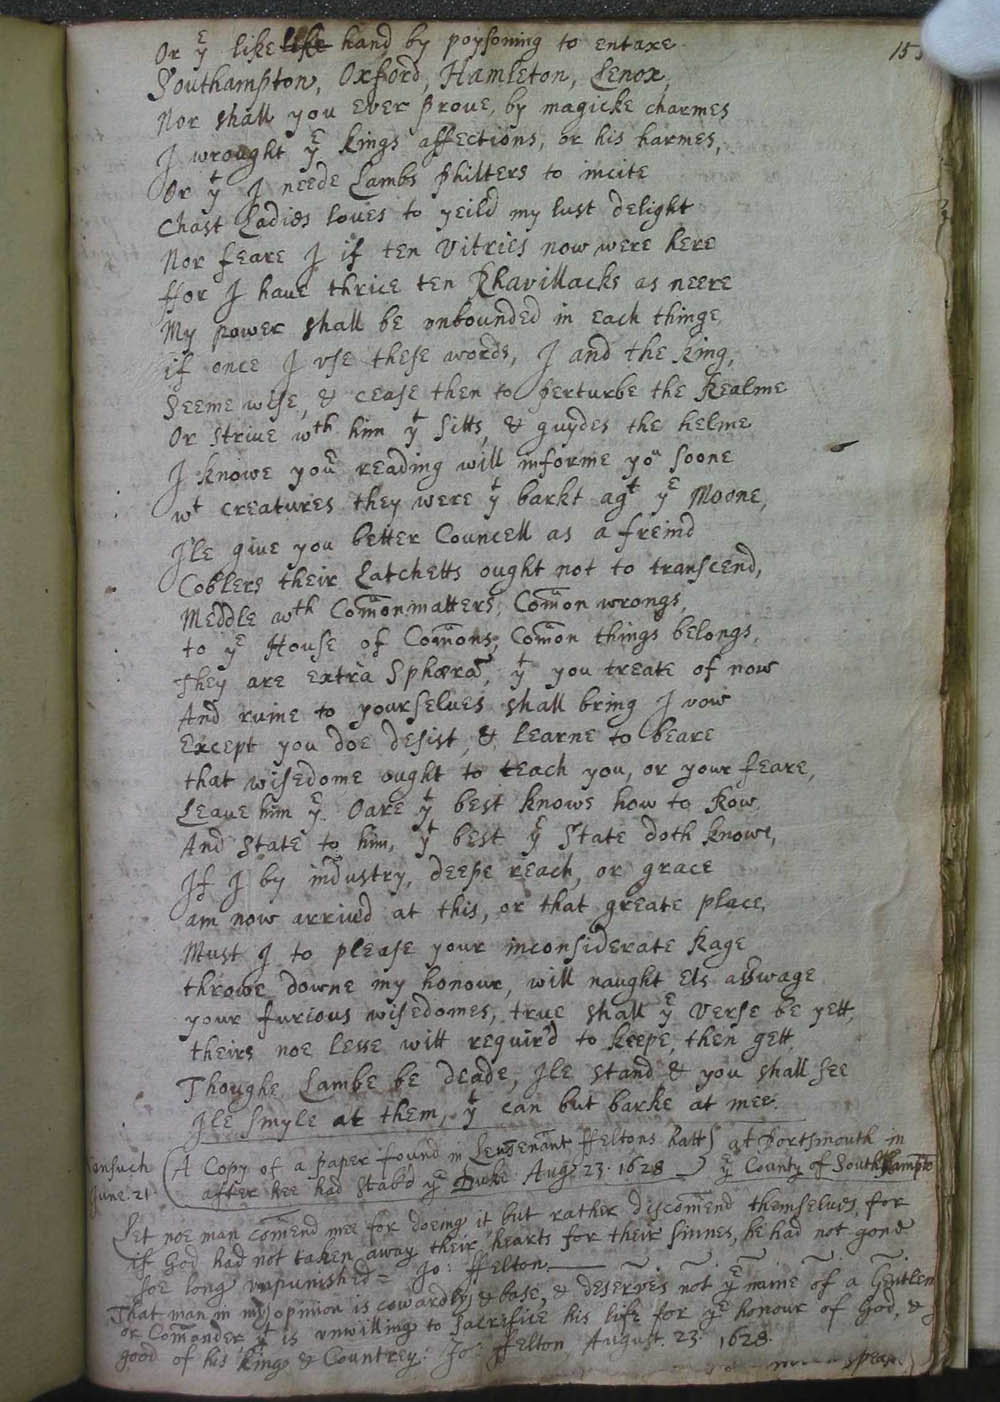 Or yᵉ like like hand by poysoning to entaxe 15
Southampton, Oxford, Hamleton, Lenox,
Nor shall you ever prove, by magicke charmes
I wrought yᵉ kings affections, or his harmes,
Or yᵗ I neede Lambs philters to incite
Chast Ladies loues to yeild my lust delight
Nor feare I if ten Vitries now were here
ffor I haue thrice ten Rhavillacks as neere
My power shall be vnbounded in each thinge
if once I vse these words, I and the king,
Seeme wise, & cease then to perturbe the Realme
Or striue wth him yᵗ sitts, & guydes the helme
I knowe youᵉ reading will informe yoᵘ soone
wᵗ creatures they were yᵗ barkt agᵗ yᵉ Moone,
I'le give you better Councell as a freind
Coblers their Latchetts ought not to transcend,
Meddle wth Com̄on matters, Com̄on wrongs,
to yᵉ House of Com̄ons, Com̄on things belongs,
They are extra Sphæra, yᵗ you treate of now
And ruine to yourselues shall bring I vow
Except you doe desist, & learne to beare
that wisedome ought to teach you, or your feare,
Leaue him yᵉ Oare yᵗ best knows how to Row
And State to him, yᵗ best yᵉ State doth knowe,
If I by industry, deepe reach, or grace
am now arriu'd at this, or that greate place,
Must I to please your inconsiderate Rage
throwe downe my honour, will naught Els asswage
your furious wisedomes, true shall yᵉ Verse be yett,
theirs noe lesse witt requir'd to keepe, then gett
Thoughe Lambe be deade, Ile stand & you shall see
Ile smyle at them, yᵗ can but barke at mee.
(A Copy of a paper found in Leuetenant ffeltons hatt at Portsmouth in
June. 21 after hee had stab'd yᵉ Duke Aug: 23. 1628 ) yᵉ County of South
Let noe man com̄end mee for doeing it but rather discom̄end themselves, for
if God had not taken away their hearts for their sinnes, he had not gone
soe long vnpunished = Jo: ffelton.
That man in my opinion is cowardly & base, & deserves not yᵉ name of a Gentlem
or Com̄ander yᵗ is vnwilling to sacrifice his life for yᵉ honour of God, &
good of his king & Countrey. Jo: ffelton August. 23. 1628.